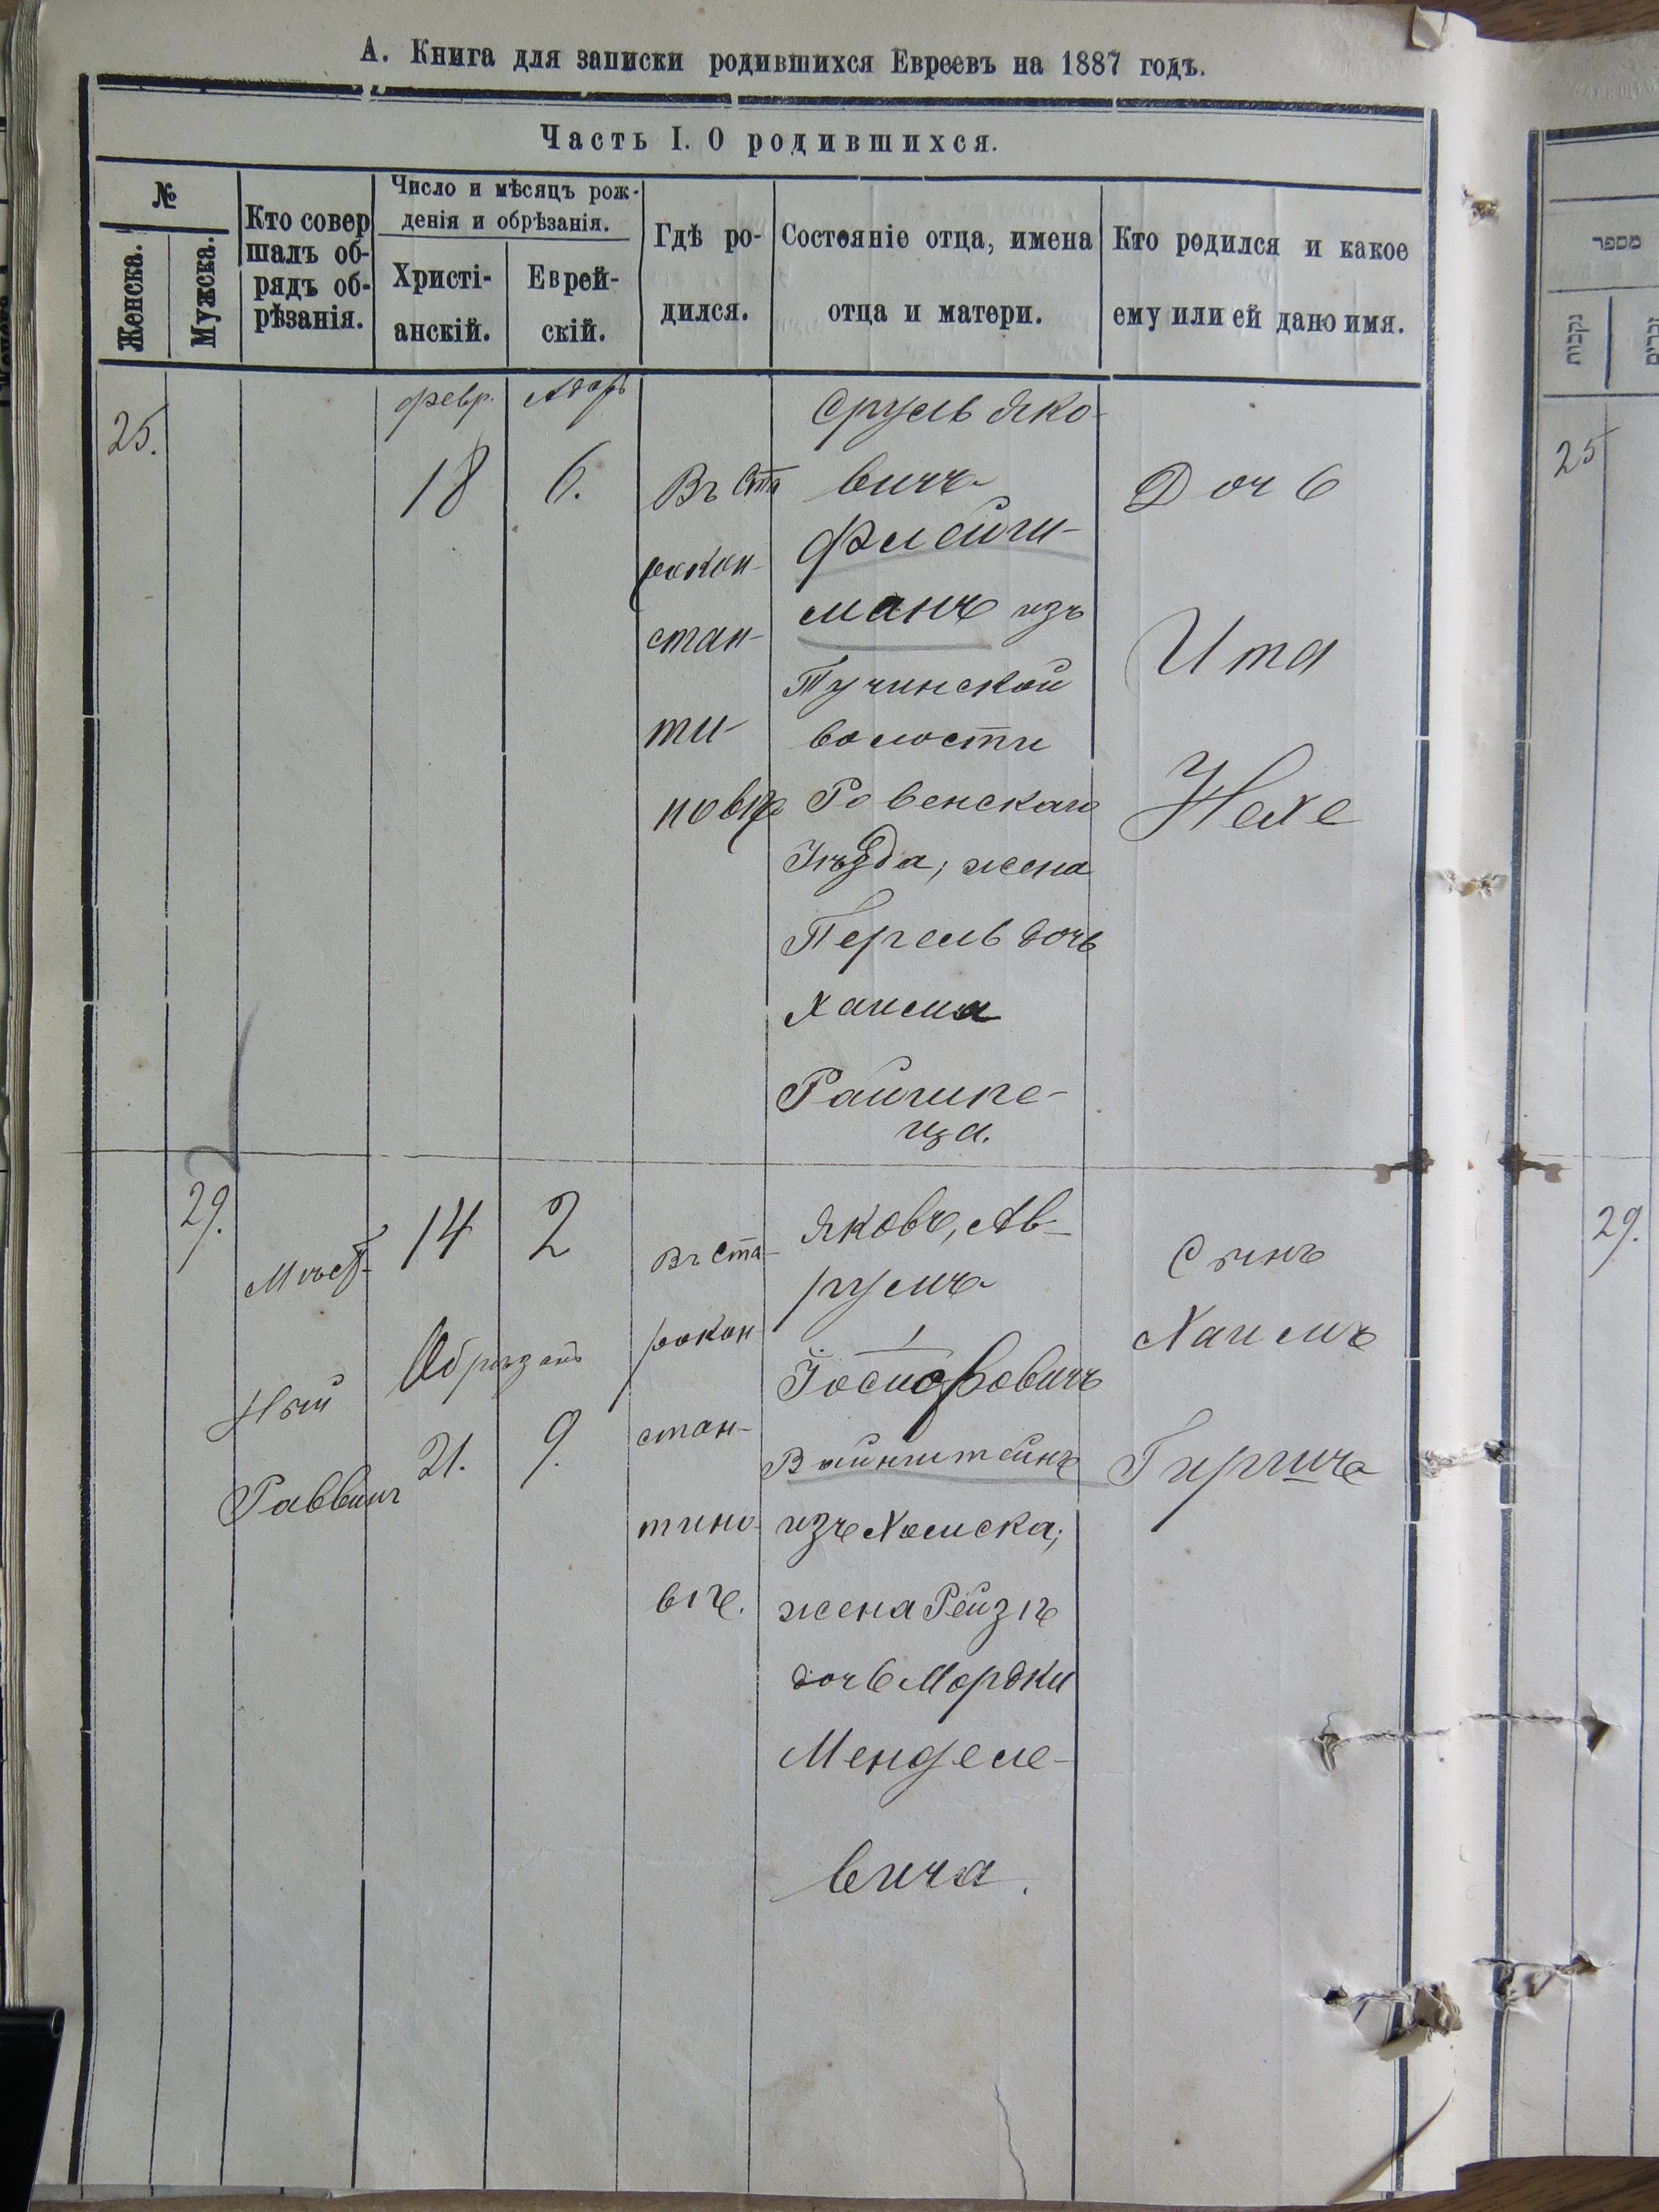 А. Книга для записки родившихся Евреевъ на 1887 годъ.
Часть I. О родившихся.
№
Женска.
Мужска.
Кто совер
шалъ об-
рядъ об-
рѣзанія.
Число и мѣсяцъ рож-
денія и обрѣзанія.
Христі-
анскій.
Еврей-
скій.
Гдѣ ро-
дился.
Состояніе отца, имена
отца и матери.
Кто родился и какое
ему или ей дано имя.
25.
февр.
18
Адаръ
6.
Въ Ста
рокон-
стан-
ти-
новѣ
Сруль Яко-
вичъ
Флейши-
манъ изъ
Тучинской
волости
Ровенскаго
Уѣзда; жена
Перель дочь
Хаима
Дочь
Ита
Нехе
29.
Мѣст-
ный
Раввинъ
14
2
Обрѣзанъ
21.
9.
Въ Ста-
рокон-
стан-
тино-
вѣ.
Яковъ, Ав-
румъ
Іосифовичъ
Вайнштейнъ
изъ Хомска;
жена Рейзѣ
дочь Мордки
Менделе-
вича.
Сынъ
Хаимъ
Гиршъ
מספר
נקבות
זכרים
25
29.